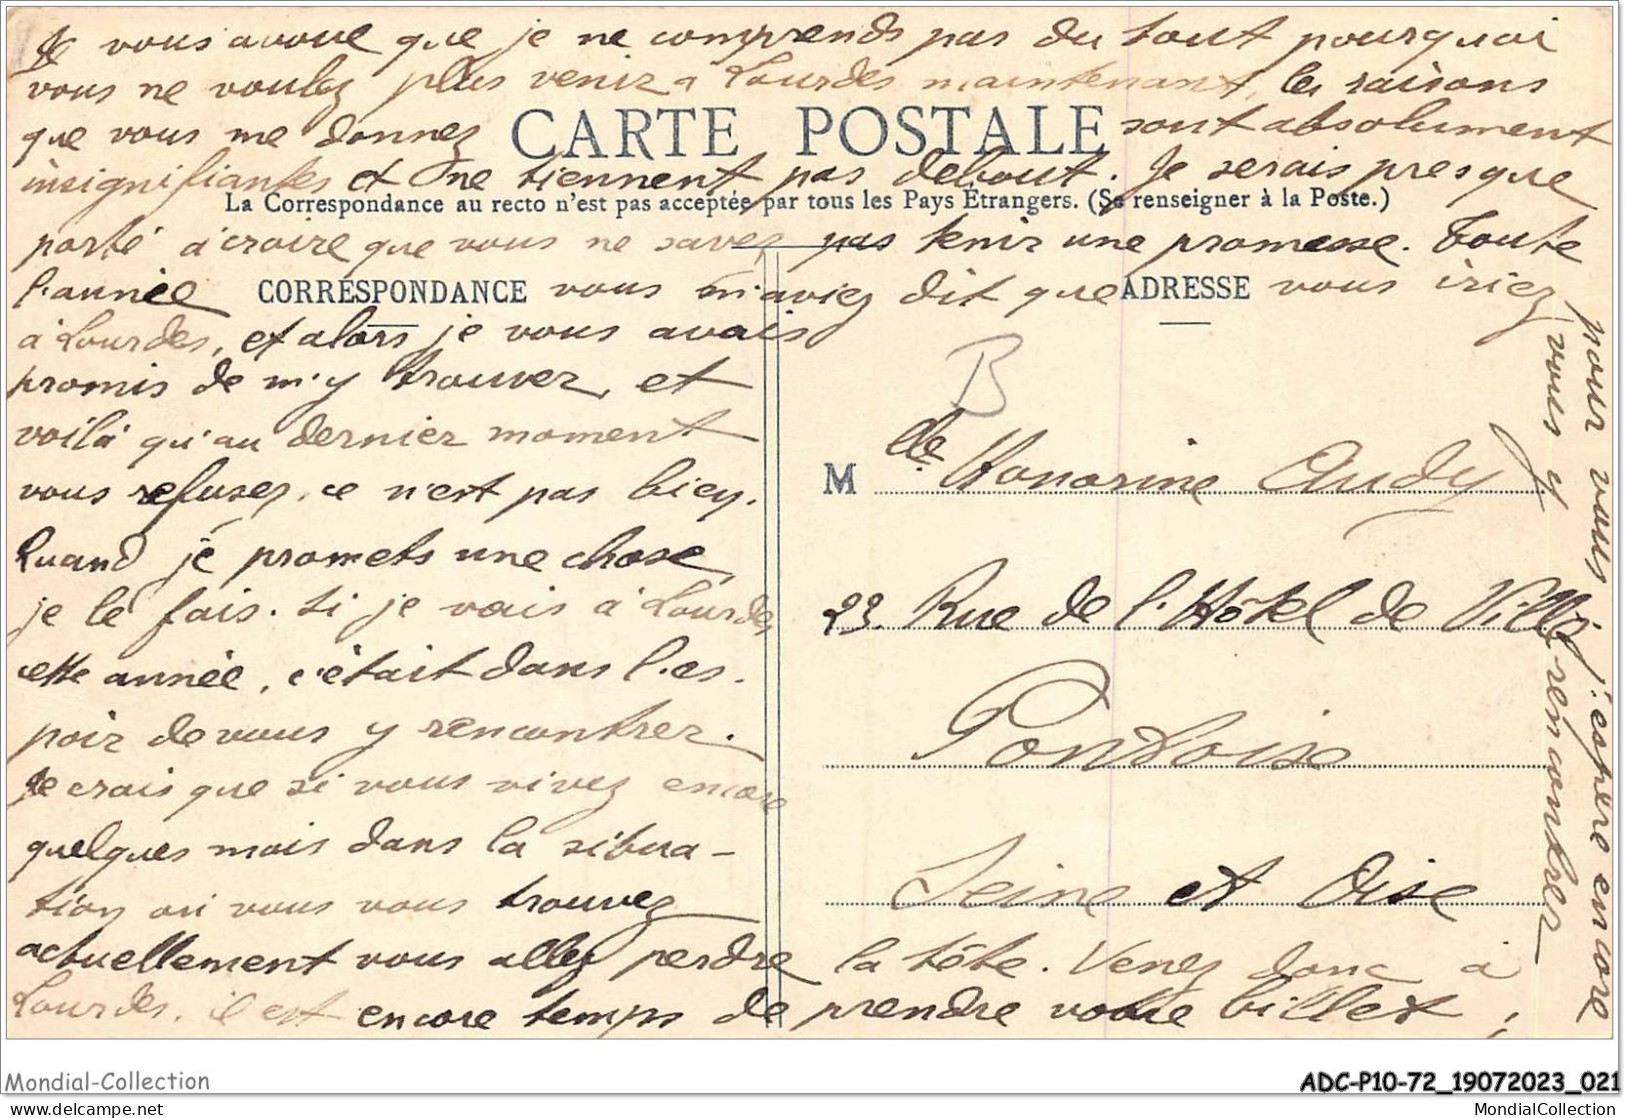 Je vous avoue que je ne comprends pas du tout pourquoi
vous ne voulez plus venir à Lourdes maintenant, les raisons
que vous me donnez sont absolument
CARTE POSTALE
insignifiantes et ne tiennent pas debout. Je serais presque
La Correspondance au recto n'est pas acceptée par tous les Pays Étrangers. (Se renseigner à la Poste.)
porté à croire que vous ne savez pas tenir une promesse. Toute
l'année vous m'aviez dit que vous iriez
CORRESPONDANCE
ADRESSE
à Lourdes, et alors je vous avais
promis de m'y trouver, et
voilà qu'au dernier moment
vous refusez, ce n'est pas bien.
Quand je promets une chose,
je le fais. Si je vais à Lourdes
cette année, c'était dans l'es-
poir de vous y rencontrer.
Je crois que si vous vivez encore
quelques mois dans la situa-
tion où vous vous trouvez
actuellement vous allez perdre la tête. Venez donc à
Lourdes, il est encore temps de prendre votre billet ;
pour vous, j'espère encore
vous y rencontrer
B
M dlle Honorine Audy
23. Rue de l'Hôtel de Ville
Pontoise
Seine et Oise
Mondial-Collection
ADC-P10-72_19072023_021
www.delcampe.net
MondialCollection